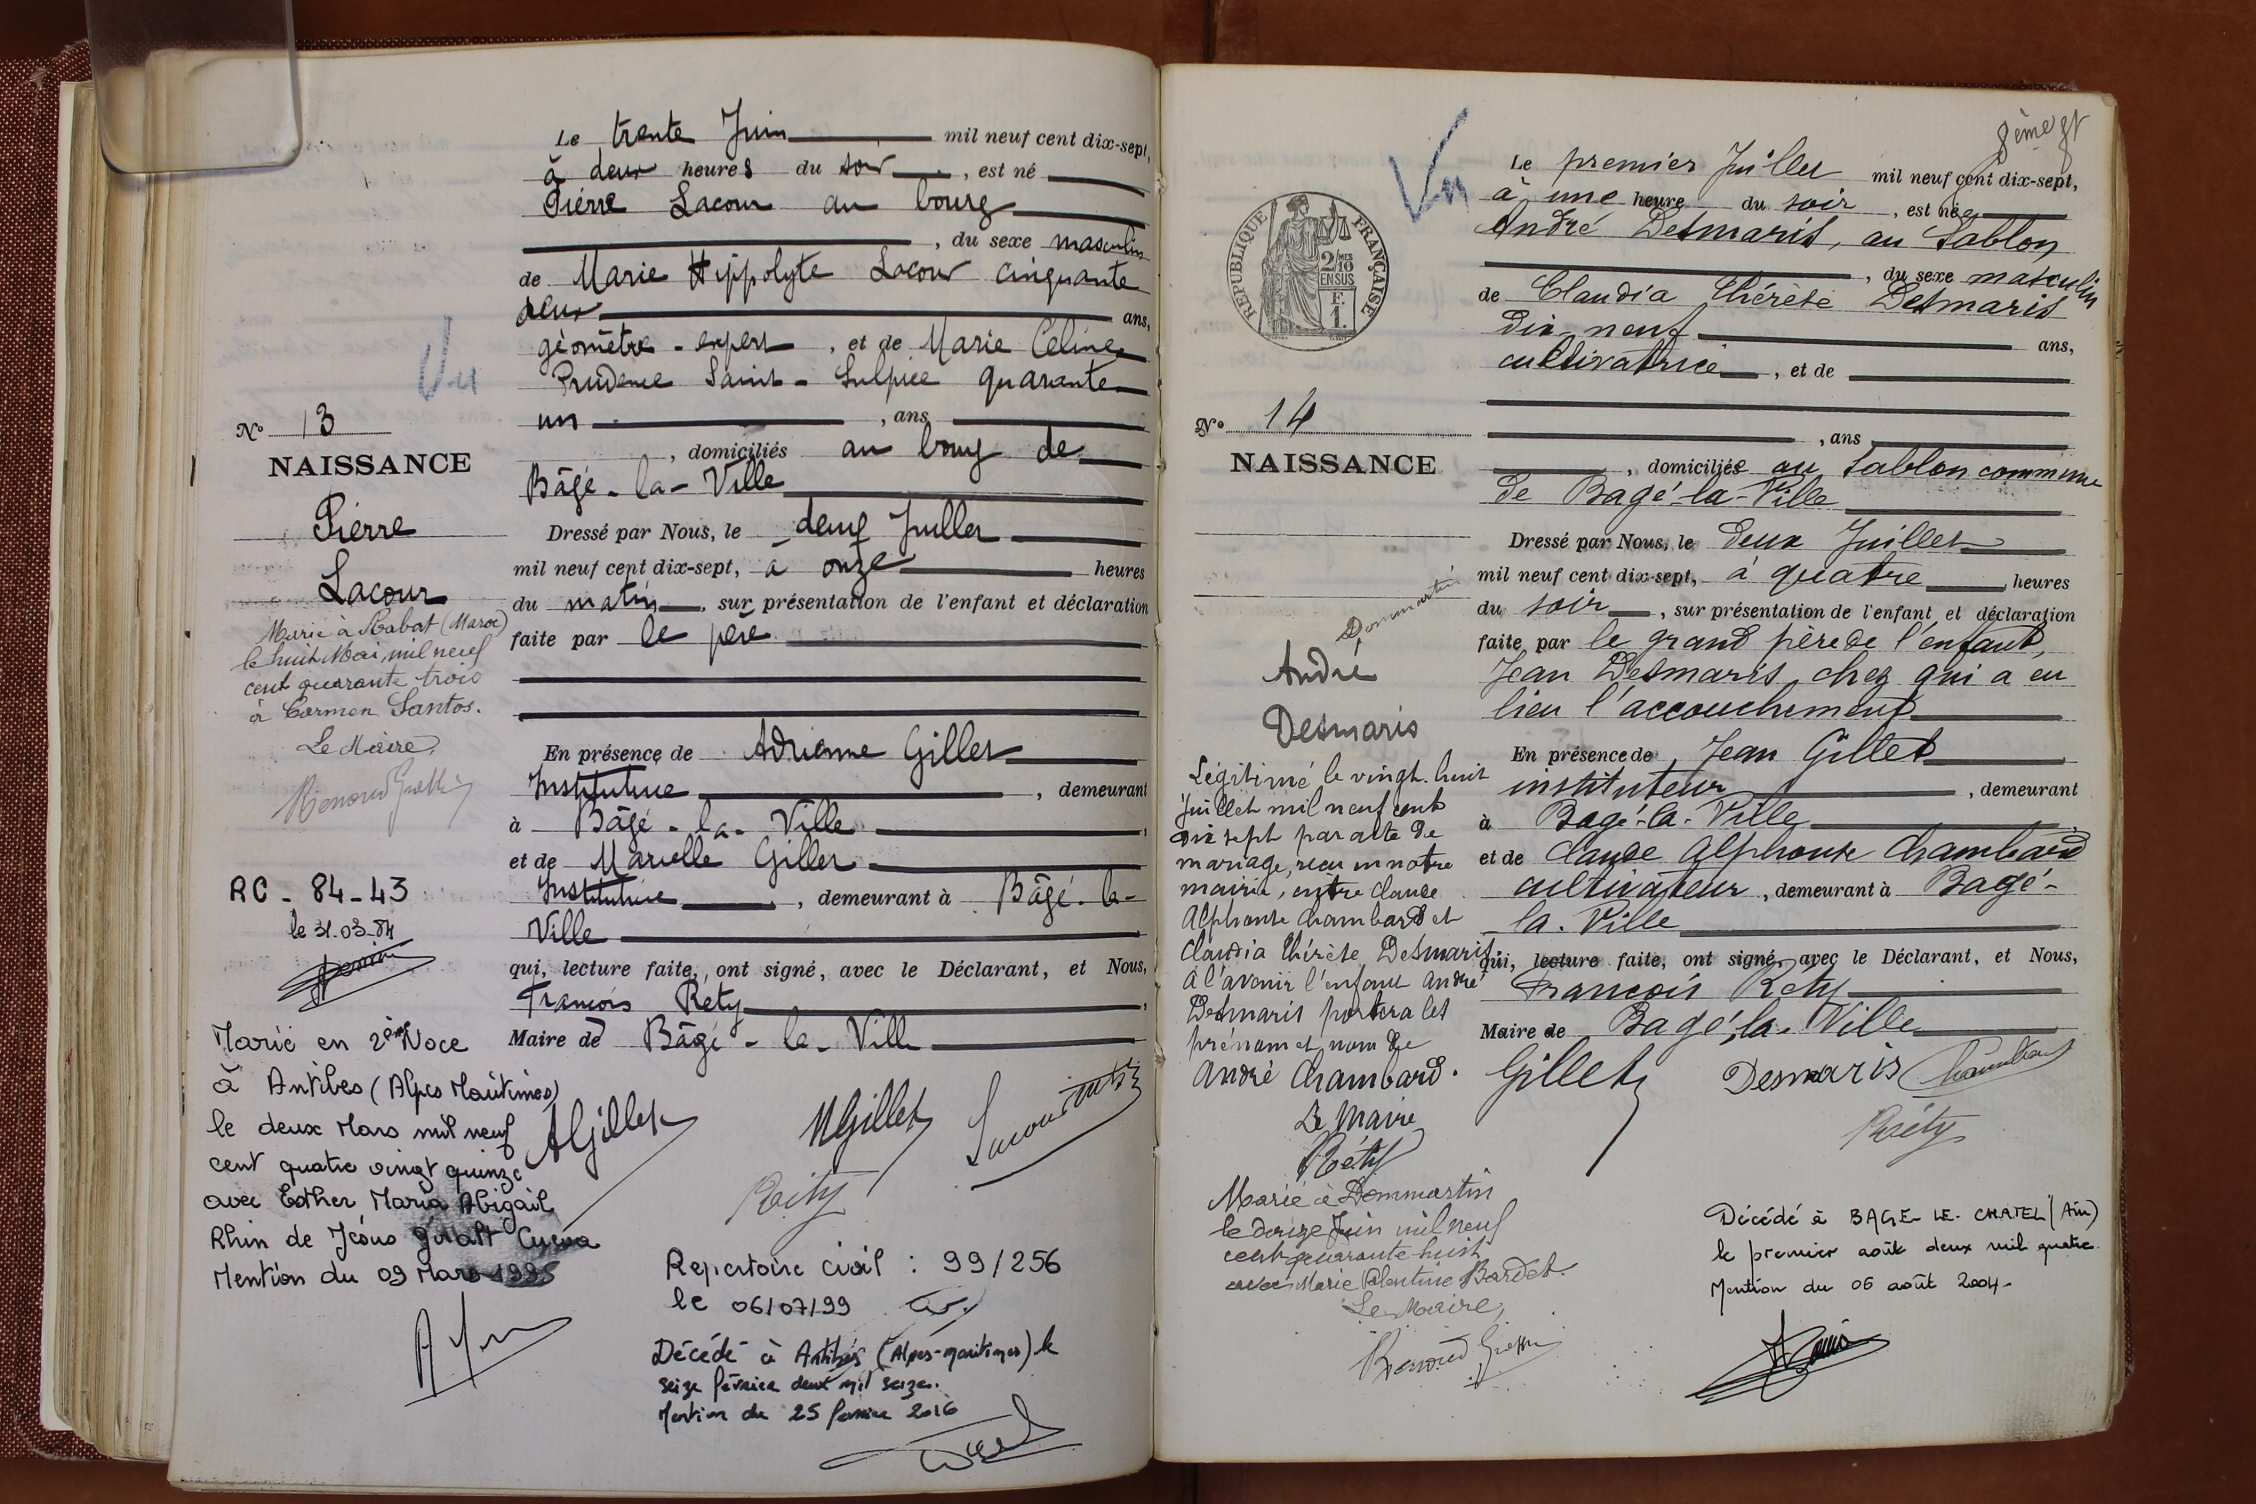 Le trente Juin mil neuf cent dix-sept,
à deux heures du soir, est né
Pierre Lacour au bourg
, du sexe masculin
de Marie Hippolyte Lacour cinquante
deux ans,
géomètre-expert, et de Marie Céline
Prudence Saint-Sulpice quarante
un, ans
, domiciliés au bourg de
Bâgé-la-Ville
Dressé par Nous, le deux Juillet
mil neuf cent dix-sept, à onze heures
du matin, sur présentation de l'enfant et déclaration
faite par le père
En présence de Adrienne Gillet
Institutrice, demeurant
à Bâgé-la-Ville
et de Marielle Gillet
Institutrice, demeurant à Bâgé-la-
Ville
qui, lecture faite, ont signé, avec le Déclarant, et Nous,
François Réty
Maire de Bâgé-la-Ville
AGillet
MGillet
Lacour
Réty
Vu
No 13
NAISSANCE
Pierre
Lacour
Marié à Rabat (Maroc)
le huit Mai mil neuf
cent quarante trois
à Carmen Santos.
Le Maire,
RC - 84-43
le 31-03-84
Marié en 2ème Noce
à Antibes (Alpes Maritimes)
le deux Mars mil neuf
cent quatre vingt quinze
avec Esther Maria Abigail
Rhin de Jésus
Mention du 09 Mars 1995
Repertoire civil : 99/256
le 06/07/99
Décédé à Antibes (Alpes-Maritimes) le
seize février deux mil seize.
Mention du 25 février 2016
8ème
Vu
Le premier Juillet mil neuf cent dix-sept,
à une heure du soir, est né
André Desmaris, au Sablon
, du sexe masculin
de Claudia Thérèse Desmaris
dix-neuf ans,
cultivatrice, et de
, ans
, domiciliée au Sablon commune
de Bagé-la-Ville
Dressé par Nous, le deux Juillet
mil neuf cent dix-sept, à quatre heures
du soir, sur présentation de l'enfant et déclaration
faite par le grand père de l'enfant,
Jean Desmaris chez qui a eu
lieu l'accouchement
En présence de Jean Gillet
instituteur, demeurant
à Bagé-la-Ville
et de Claude Alphonse Chambard
cultivateur, demeurant à Bagé-
la-Ville
qui, lecture faite, ont signé, avec le Déclarant, et Nous,
François Réty
Maire de Bagé-la-Ville
Gillet
Desmaris
Chambard
Réty
RÉPUBLIQUE FRANÇAISE
2/10MES
EN SUS
F.
1.
No 14
NAISSANCE
Dommartin
André
Desmaris
Légitimé le vingt-huit
Juillet mil neuf cent
dix sept par acte de
mariage, reçu en notre
mairie, entre Claude
Alphonse Chambard et
Claudia Thérèse Desmaris
à l'avenir l'enfant André
Desmaris portera les
prénom et nom de
André Chambard.
Le Maire
Réty
Marié à Dommartin
le douze Juin mil neuf
cent quarante huit
avec Marie Valentine Bardet.
Le Maire,
Décédé à BAGE-LE-CHATEL (Ain)
le premier août deux mil quatre.
Mention du 06 août 2004-